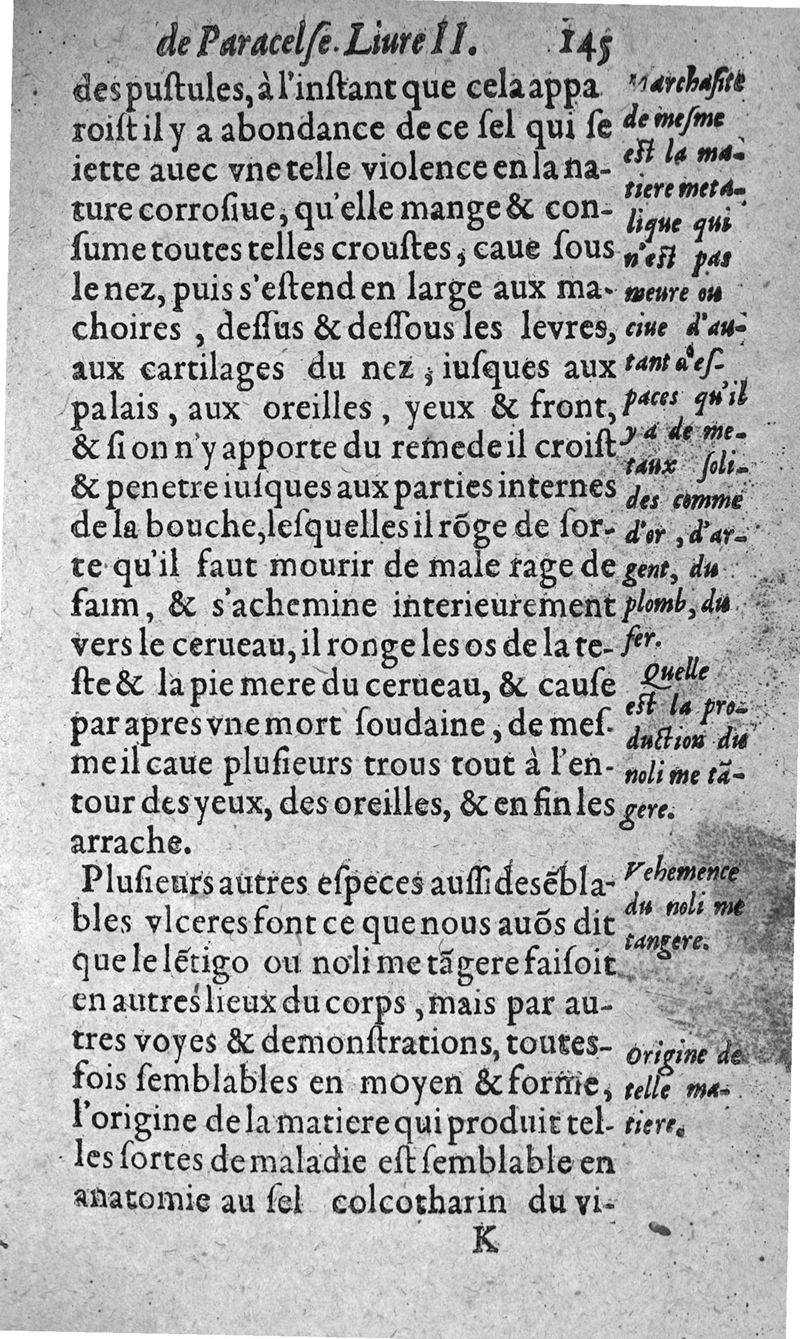 de Paracelſe. Liure II. 145
des puſtules, à l'inſtant que cela appa
roiſt il y a abondance de ce ſel qui ſe
iette auec vne telle violence en la na-
ture corroſiue, qu'elle mange & con-
ſume toutes telles crouſtes, caue ſous
le nez, puis s'eſtend en large aux ma-
choires, deſſus & deſſous les levres,
aux cartilages du nez, iuſques aux
palais, aux oreilles, yeux & front,
& ſi on n'y apporte du remede il croiſt
& penetre iuſques aux parties internes
de la bouche, leſquelles il rõge de ſor-
te qu'il faut mourir de male rage de
faim, & s'achemine interieurement
vers le cerueau, il ronge les os de la te-
ſte & la pie mere du cerueau, & cauſe
par apres vne mort ſoudaine, de meſ-
me il caue pluſieurs trous tout à l'en-
tour des yeux, des oreilles, & en fin les
arrache.
Pluſieurs autres eſpeces auſſi de sẽbla-
bles vlceres font ce que nous auõs dit
que le lẽtigo ou noli me tãgere faiſoit
en autres lieux du corps, mais par au-
tres voyes & demonſtrations, toutes-
fois ſemblables en moyen & forme,
l'origine de la matiere qui produit tel-
les ſortes de maladie eſt ſemblable en
anatomie au ſel colcotharin du vi-
K
Marchaſite
de meſme
eſt la ma-
tiere meta-
lique qui
n'eſt pas
meure ou
ciue d'au-
tant d'eſ-
paces qu'il
y a de me-
taux ſoli-
des comme
d'or, d'ar-
gent, du
plomb, du
fer.
Quelle
eſt la pro-
duction du
noli me tã-
gere.
Vehemence
du noli me
tangere.
Origine de
telle ma-
tiere.